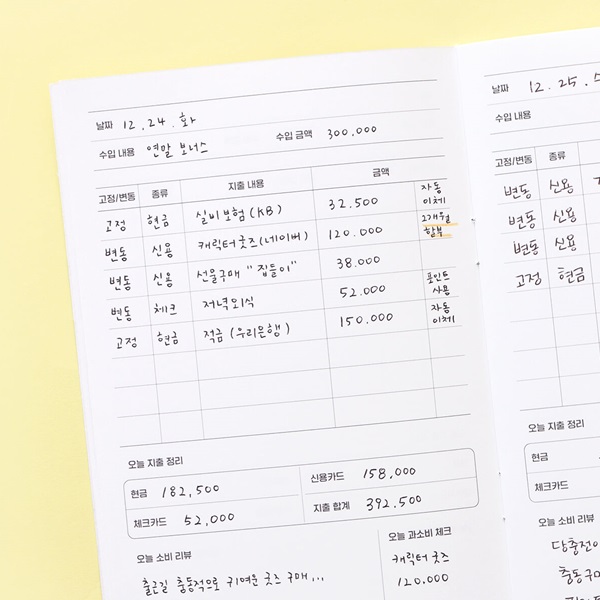 날짜 12.24.화
수입 내용 연말 보너스 수입 금액 300.000
고정/변동 종류 지출 내용 금액
고정 현금 실비보험(KB) 32.500 자동 이체
변동 신용 캐릭터굿즈(네이버) 120.000 2개월 할부
변동 신용 선물구매 "집들이" 38.000
변동 체크 저녁외식 52.000 포인트 사용
고정 현금 적금(우리은행) 150.000 자동 이체
오늘 지출 정리
현금 182,500 신용카드 158,000
체크카드 52,000 지출 합계 392.500
오늘 소비 리뷰 오늘 과소비 체크
출근길 충동적으로 귀여운 굿즈 구매... 캐릭터 굿즈
120.000
날짜 12.25.
수입 내용
고정/변동 종류
변동 신용
변동 신용
변동 신용
고정 현금
오늘 지출 정리
현금
체크카드
오늘 소비 리뷰
당충전이
충동구